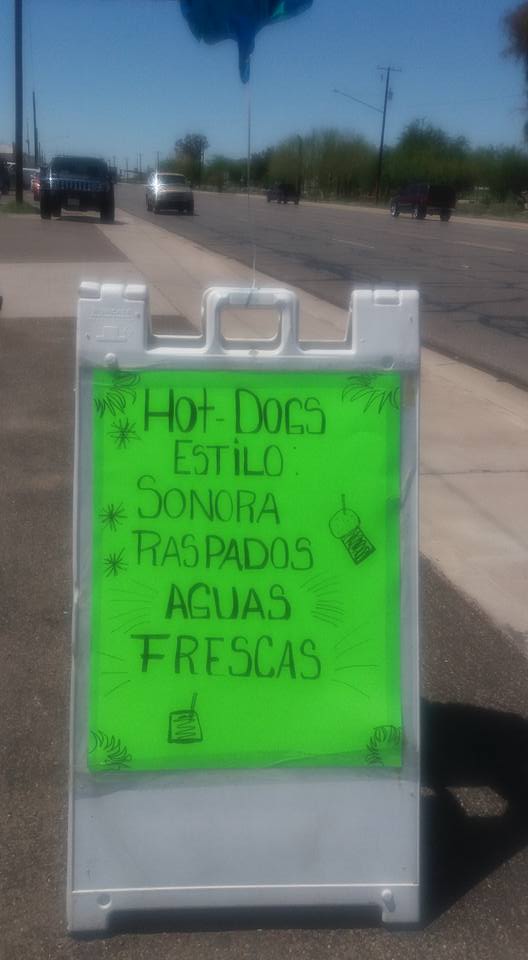 HOt-DOGS
ESTiLO:
SONORA
RASPADOS
AGUAS
FRESCAS